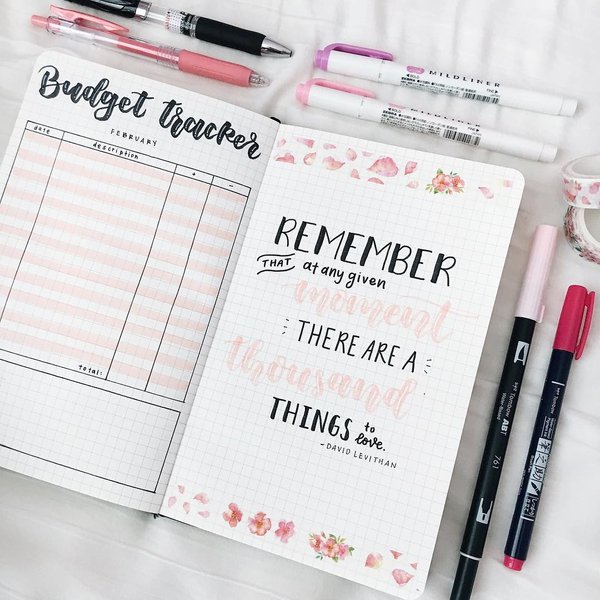 Budget tracker
FEBRUARY
date description + -
total:
REMEMBER
THAT at any given
moment
THERE ARE A
thousand
THINGS to
love.
-DAVID LEVITHAN
MILDLINER
MILDLINER
Tombow ABT
761
Tombow